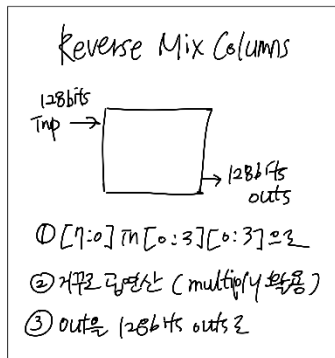 Reverse Mix Columns
128bits
Inp
128bits
outs
① [7:0] in [0:3][0:3]으로
② 거꾸로 곱연산 (multiply 활용)
③ out을 128bits outs로